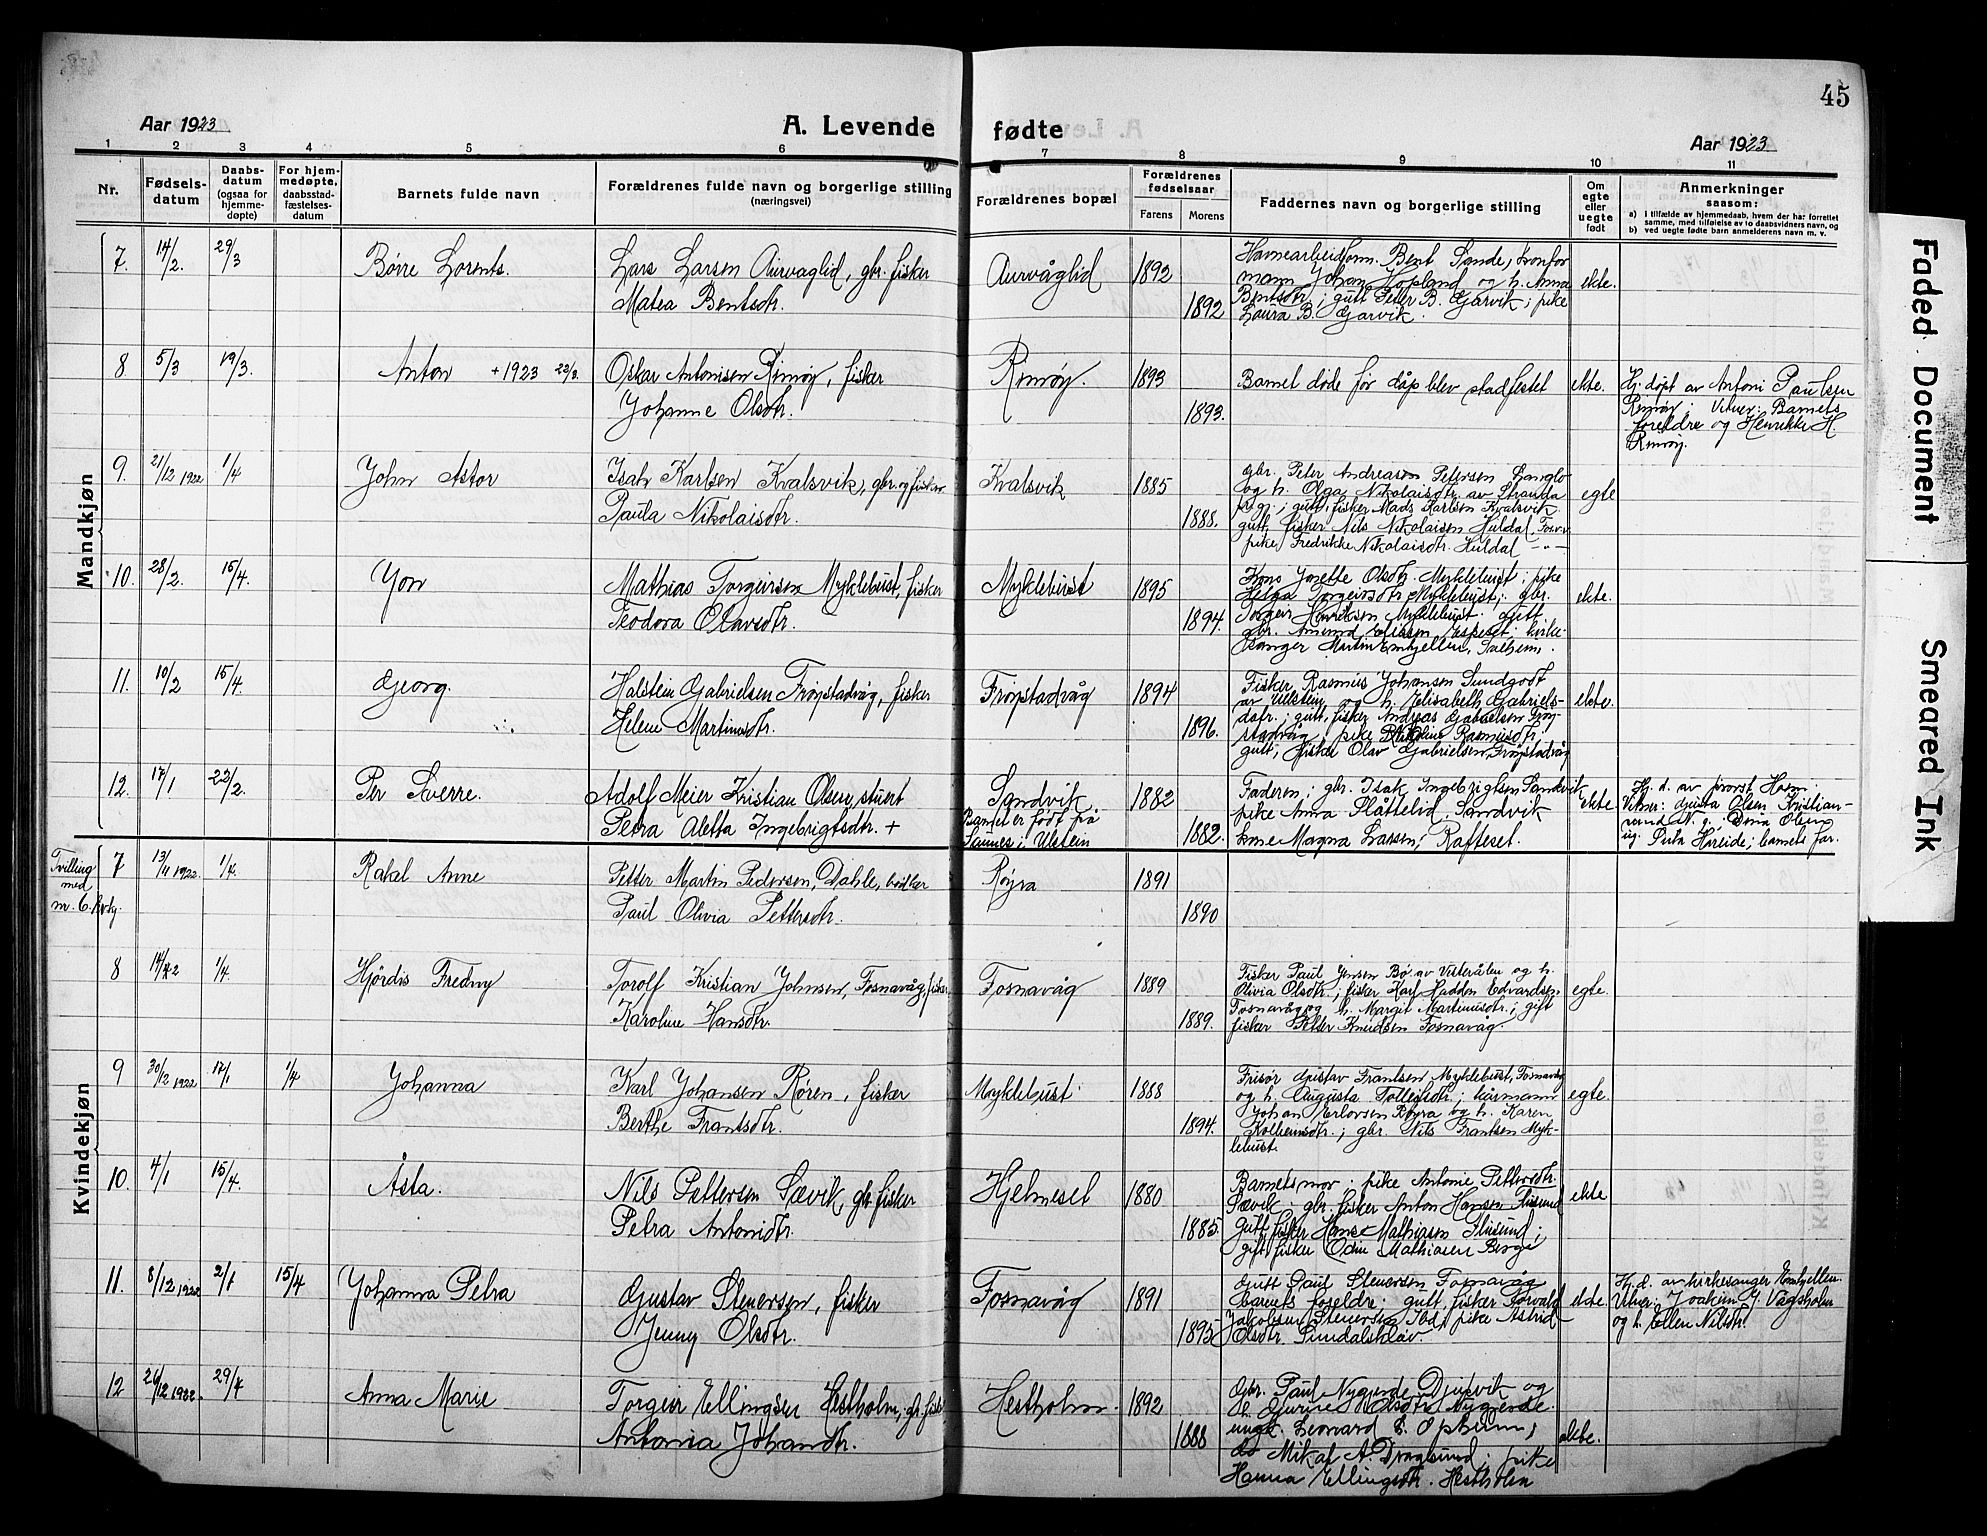 45
Aar 1923
A. Levende fødte
Aar 1923
1 2 3 4 5 6 7 8 9 10 11
Nr.
Fødsels-
datum
Daabs-
datum
(ogsaa for
hjemme-
døpte)
For hjem-
medøpte,
daabsstad-
fæstelses-
datum
Barnets fulde navn
Forældrenes fulde navn og borgerlige stilling
(næringsvei)
Forældrenes bopæl
Forældrenes
fødselsaar
Farens Morens
Faddernes navn og borgerlige stilling
Om
egte
eller
uegte
født
Anmerkninger
saasom:
a) i tilfælde av hjemmedaab, hvem der har forrettet
samme, med tilføielse av to daabsvidners navn, og
b) ved uegte født barn anmelderens navn m. v.
Mandkjøn
7. 14/2. 29/3 Børre Lorents. Lars Larsen Aurvaglid, gbr. fisker
Matea Bentsdtr.
Aurvåglid 1892
1892
Havnearbeidform. Bent Sande,
mann Johan Hopland og h. Anna
Bentsdtr.; gutt Peter B. Garvik; pike
Laura B. Garvik.
ekte.
8. 5/3 19/3. Anton + 1923 22/3. Oskar Antonisen Remøy, fisker
Johanne Olsdtr.
Remøy. 1893
1893.
Barnet døde før dåp blev stadfestet
ekte.
Hj. døpt av Antoni Paulsen
Remøy. Vitner: Barnets
foreldre og Henrikke H.
Remøy.
9. 21/12 1922 1/4 John Astor Isak Karlsen Kvalsvik, gbr. og fisker
Paula Nikolaisdtr.
Kvalsvik 1885
1888.
gbr. Peter Andreas Petersen Langlo
og h. Olga Nikolaisdtr. av Stranda
prgj.; gutt, fisker Mads Karlsen Kvalsvik
gutt, fisker Nils Nikolaisen Huldal
pike Fredrikke Nikolaisdtr. Huldal — " —
egte
10. 28/2. 15/4. Jon Mathias Torgeirsen Myklebust, fisker
Teodora Olavsdtr.
Myklebust 1895
1894.
Kone Josette Olsdtr. Myklebust; pike
Helga Torgeirsdtr. Myklebust; gbr.
Torgeir Henriksen Myklebust. gutt,
gbr. Amund Espeset; kirke-
sanger Martin Emhjellen, Solheim.
ekte.
11. 10/2 15/4. Georg. Halstein Gabrielsen Frøystadvåg, fisker
Helene Martinusdtr.
Frøystadvåg 1894
1896.
Fisker Rasmus Johansen Sundgodt
av Ulstein og h. Elisabeth Gabriels-
dotr.; gutt, fisker Andreas Gabrielsen Frøy-
stadvåg, pike Rasmusdtr.
gutt, fisker Olav Gabrielsen, Frøystadvåg
ekte.
12. 17/1 22/2. Per Sverre. Adolf Meier Kristian Olsen, stuert
Petra Aletta Ingebrigtsdtr. +
Sandvik.
Barnet er født på
Saunes i Ulstein
1882
1882.
Faderen; gbr. Isak Ingebrigtsen Sandvik
pike Anna Slåttelid, Sandvik
kone Magna Larsen, Rafteset.
ekte.
Hj. d. av provst Hoem.
Vitner: Gusta Olsen Kristian-
sund N. og Dina Olsen
og Petra Hareide; barnets far.
Kvindekjøn
Tvilling
med
m. 6.
7 13/11 1922. 1/4. Rakel Anne Petter Martin Pedersen, Dahle,
Paul Olivia Pettersdtr.
Røyra 1891
1890
8 1/4. Hjørdis Fredny Torolf Kristian Johnsen, Fosnavåg, fisker
Karoline Hansdtr.
Fosnavåg 1889
1889.
Fisker Paul Jensen Bø av Vesterålen og h.
Olivia Olsdtr.; fisker Haddon Edvardsen
Fosnavåg og h. Margit Martinusdtr.; gift
fisker Petter Knudsen Fosnavåg.
egte.
9 30/12 1922. 17/1 1/4 Johanna Karl Johansen Røren, fisker
Berthe Frantsdtr.
Myklebust. 1888
1894.
Frisør Gustav Frantsen Myklebust, Fosnavåg
og h. Augusta Tollefsdtr.;
Johan Erlovsen Røyra og h. Karen
Kolbeinsdtr.; gbr. Nils Frantsen Myk-
lebust.
egte.
10. 4/1 15/4. Åsta. Nils Pettersen Sævik, gbr. fisker
Petra Antonidtr.
Hjelmeset 1880
1885.
Barnets mor; pike Antonie Pettersdtr.
Sævik, gbr. fisker Anton Hansen Flusund
Gutt, fisker Hans Mathiasen Flusund;
gift fisker Odin Mathiasen Berge
ekte
11. 8/12 1922 2/1 15/4 Johanna Petra Gustav Stenersen, fisker
Jenny Olsdtr.
Fosnavåg 1891
1895
Gutt Paul Stenersen Fosnavåg
barnets foreldre; gutt, fisker Torvald
Jakobsen Stenersen Ibd, pike Astrid
Olsdtr. Sundalskleiv.
ekte.
Hj. d. av kirkesanger Emhjellen.
Vitner: Joakim J. Vågsholm
og h. Ellen Nilsdtr.
12 26/12 1922. 29/4 Anna Marie Torgeir Ellingsen Hestholm, gbr. fisker
Antonia Johandtr.
Hestholm. 1892
1888
Gbr. Paul Nygjerde Djupvik og
h. Gurine Olsdtr. Nygjerde.
ungk. Leonard E. Opskum,
do Mikal A. Dragsund; pike
Hanna Ellingsdtr. Hestholm
ekte.
Faded Document
Smeared Ink